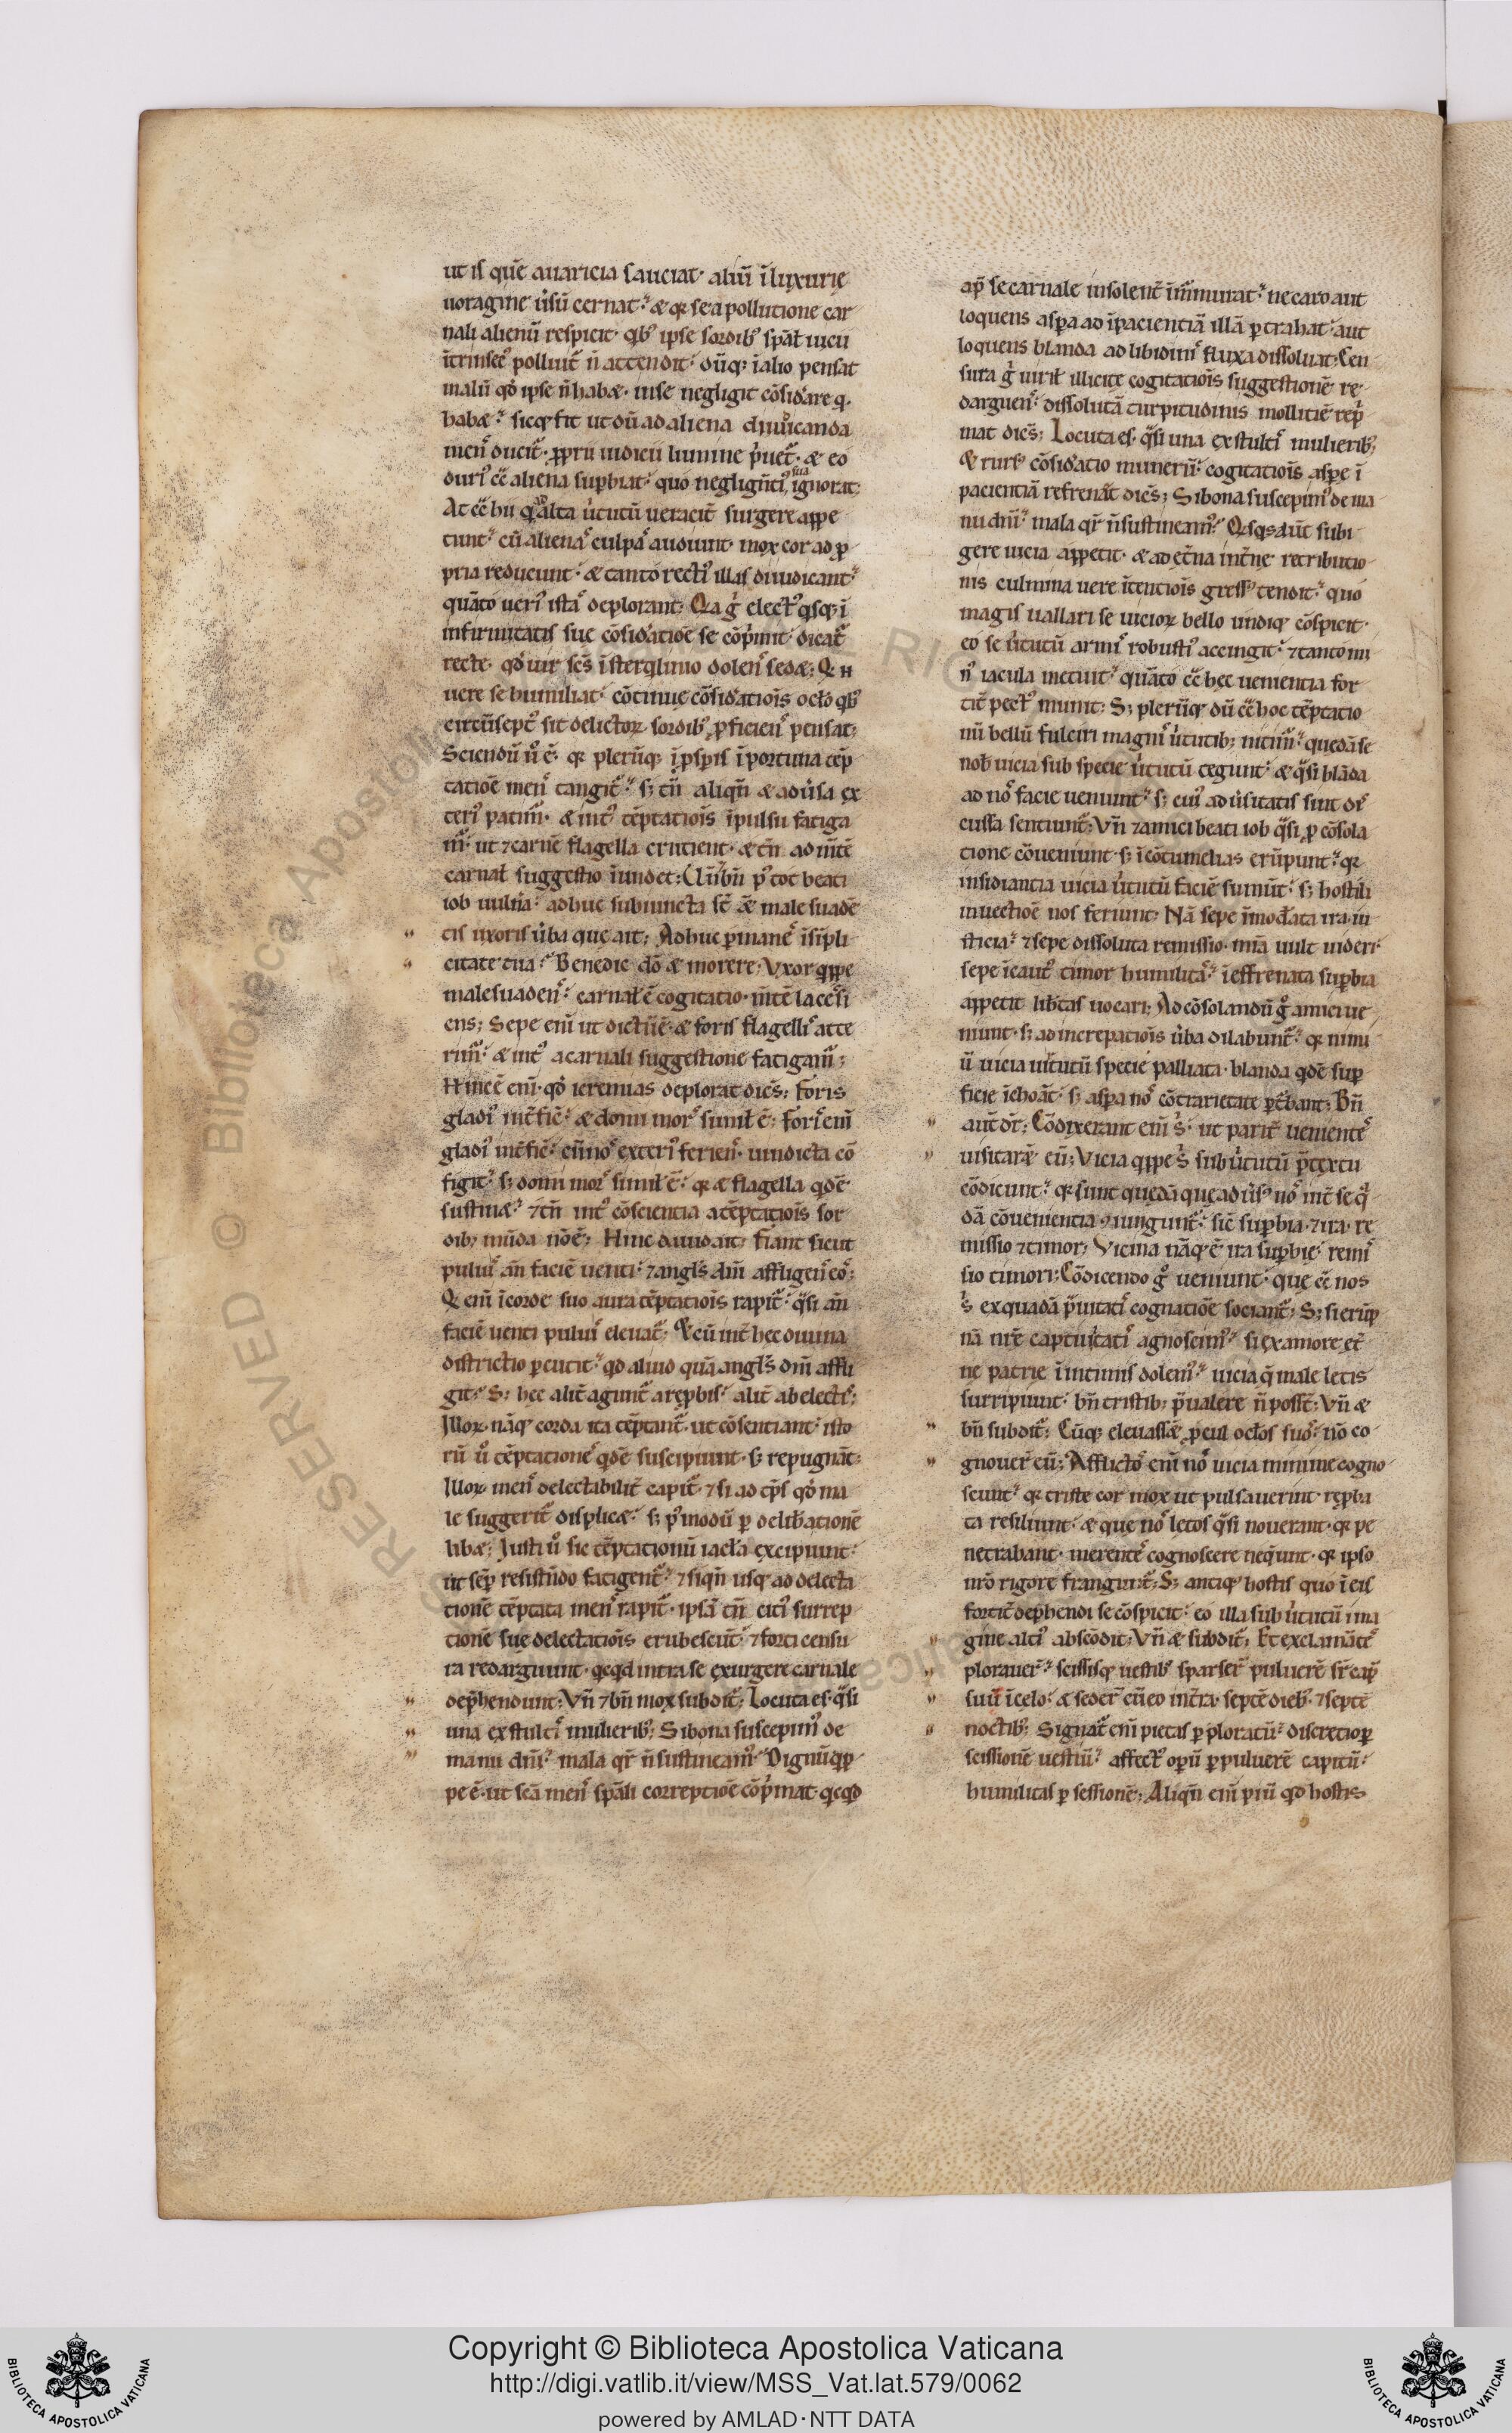 ut is quē auaricia sauciat· aliū ī luxurię
uoragine ūsū cernat· & qꝛ se a pollutione car
nali alienū respicit· qꝫ ipse sordibꝰ spāł iucū
ītrinsecꝰ polluit̄ n̄ attendit· dūqꝫ ī alio pensat
malū qd̓ ipse n̄ hab&· in se negligit cōsid̓are qꝫ
hab&· sicqꝫ fit ut dū ad aliena diiudicanda
men̄ ducit̄· ꝓprii iudicii lumine p̓uet̄· & eo
durꝰ cc̄ aliena suꝑbiat· quo neglign̄tiꝰ sua ignorat·
At cc̄ hii qui alta ūtutū ueracit̄ surgere appe
tunt· cū alienaˢ culpaˢ audiunt· mox cor ad ꝓ
pria reducunt· & tanto rectiꝰ illas diiudicant·
quāto ueriꝰ istaˢ deplorant· Qa g̓ electꝰ qsqꝫ ī
infirmitatis sue cōsid̓atiōe se cōp̓mit· dicat̄
recte· qd̓ uir sc̄s ī sterqlinio dolenˢ sed&· Qui
uere se humiliat· cōtinue cōsid̓atiōis oclo qꝫ
circūsept̄ sit delictoꝝ sordibꝰ ꝓficienˢ pensat·
Sciendū ū ē· qꝛ plerūqꝫ ī pspis īportuna tēp
tatiōe menˢ tangit̄· sꝫ tn̄ aliqn̄ & adūsa ex
teriꝰ patim̄· & int̄ tēptatiōis īpulsu fatiga
m̄· ut ⁊ carnē flagella crucient· & tn̄ ad mītē
carnał suggestio īundet· Un̄ bn̄ pꝰ tot beati
iob uuln̄a· adhuc subiuncta st̄ & male suadē
tis uxoris ūba que ait· Adhuc ꝑmaneˢ ī sīpli
citate tua· Benedic dō & morere· Vxor qppe
malesuadenˢ· carnał ē cogitatio· mītē lacessi
ens· Sepe enī ut dictū ē· & foris flagelliˢ atte
rim̄· & int̄ a carnali suggestione fatigam̄·
Hinc ē enī· qd̓ ieremias deplorat dicēs· Foris
gladiꝰ int̄ficˢ· & domi morˢ simił ē· Foriˢ enī
gladiꝰ int̄ficˢ· cū noˢ exteriꝰ ferienˢ· uindicta cō
figit· sꝫ domi morˢ simił ē· qꝛ & flagella qdē
sustin&· ⁊ tn̄ int̄ cōscientia a tēptatiōis sor
dibꝫ mūda nō ē· Hinc dauid ait· Fiant sicut
puluiˢ an̄ faciē uenti· ⁊ angls̄ dn̄i affligenˢ eoˢ·
Q enī ī corde suo aura tēptatiōis rapit̄· qsi an̄
faciē uenti puluiˢ eleuat̄· Et cū int̄ hec diuina
districtio ꝑcutit· qd aliud quā angls̄ dn̄i affli
git· Sꝫ hec alit̄ agunt̄ a reꝓbis· alit̄ ab electiˢ·
Illoꝝ nāqꝫ corda ita tēptant̄· ut cōsentiant· isto
rū ū tēptationeˢ qdē suscipiunt· sꝫ repugnāt·
Illoꝝ menˢ delectabilit̄ capit̄· ⁊ si ad tp̄s qd̓ ma
le suggerit̄ displic&· sꝫ pꝰmodū ꝑ delib̄atione
lib&· Justi ū sic tēptationū iacła excipiunt·
ut sēꝑ resistn̄do fatigent̄· ⁊ siqn̄ usqꝫ ad delecta
tionē tēptata menˢ rapit̄· ipsā tn̄ citiꝰ surrep
tionē sue delectatiōis erubescūt· ⁊ forti censu
ra redarguunt· qcqd intra se exurgere carnale
dep̓hendunt· Vn̄ ⁊ bn̄ mox subdit̄· Locuta es· qsi
una ex stultiˢ mulieribꝫ· Si bona suscepimꝰ de
manu dn̄i· mala qr̄ n̄ sustineamꝰ· Dignū qp
pe ē· ut scā menˢ spāli correptiōe cōp̓mat· qcqd
ap̄ se carnale insolent̄ īm̄murat· ne caro aut
loquens aspera ad īpacientiā illā ꝑtrahat· aut
loquens blanda ad libidiniˢ fluxa dissoluat· Cen
sura g̓ uirił illicite cogitatiōis suggestionē re
darguenˢ· dissolutā turpitudinis mollitiē rep̓
mat dicēs· Locuta es· qsi una ex stultiˢ mulieribꝫ·
& rursꝰ cōsid̓atio munerū· cogitatiōis aspe ī
pacientiā refrenāt dicēs· Si bona suscepimꝰ de ma
nu dn̄i· mala qr̄ n̄ sustineamꝰ· Qsqꝫ aūt subi
gere uicia appetit· & ad et̄na int̄ne retributio
nis culmina uere ītentiōis gressꝰ tendit· quo
magis uallari se uicioꝝ bello undiqꝫ cōspicit·
eo se ūtutū armiˢ robustiꝰ accingit· ⁊ tanto mi
nꝰ iacula metuit· quāto cc̄ hec uenientia for
tit̄ pectꝰ munit· Sꝫ plerūqꝫ dū cc̄ hoc tēptatio
nū bellū fulciri magniˢ ūtutibꝫ nitim̄· quedā se
nob̄ uicia sub specie ūtutū tegunt· & qsi blāda
ad noˢ facie ueniunt· sꝫ cuiꝰ adūsitatis sint dis
cussa sentiunt̄· Vn̄ ⁊ amici beati iob qsi ꝓ cōsola
tione cōueniunt· sꝫ ī cōtumelias erūpunt· qꝛ
insidiantia uicia ūtutū faciē sumūt· sꝫ hostili
inuectiōe nos feriunt· Nā sepe īmod̓ata ira· iu
sticia· ⁊ sepe dissoluta remissio· mīa uult uideri·
sepe īcautꝰ timor humilitaˢ· ī effrenata suꝑbia
appetit lib̄tas uocari· Ad cōsolandū g̓ amici ue
niunt· sꝫ ad increpatiōis ūba dilabunt̄· qꝛ nimi
ū uicia uirtutū specie palliata· blanda qdē suꝑ
ficie īchoāt· sꝫ aspa noˢ cōtrarietate ꝑt̄bant· Bn̄
aūt dr̄· Cōdixerant enī s̓· ut parit̄ uenienteˢ
uisitarēt eū· Vicia qppe s̓ sub ūtutū p̄textu
cōdicunt· qꝛ sunt quedā que adūsꝰ noˢ int̄ se q̓
dā cōuenientia ꝯiungunt̄· sic̄ suꝑbia· ⁊ ira· re
missio ⁊ timor· Vicina nāqꝫ ē ira suꝑbię· remiˢ
sio timori· Cōdicendo g̓ ueniunt· que cc̄ nos
s̓ ex quadā p̓uitatiˢ cognatiōe sociant̄· Sꝫ si erūp
nā nr̄e captiuitatiˢ agnoscim̄· si ex amore et̄
ne patrie ī intimis dolemꝰ· uicia q̄ male letis
surripiunt· bn̄ tristibꝫ p̄ualere n̄ possn̄t· Vn̄ &
bn̄ subdit̄· Cūqꝫ eleuassēt ꝓcul oclos suoˢ· nō co
gnouer̄ eū· Afflictoˢ enī noˢ uicia minime cogno
scunt· qꝛ triste cor mox ut pulsauerint· reꝓba
ta resiliunt· & que noˢ letos qsi nouerant· qꝛ pe
netrabant· merenteˢ cognoscere neq̄unt· qꝛ ipso
nr̄o rigore frangunt̄· Sꝫ antiqꝰ hostis quo ī eis
fortit̄ dep̓hendi se cōspicit· eo illa sub ūtutū ima
gine altiꝰ abscōdit· Vn̄ & subdit̄· Et exclamāteˢ
plorauer̄· scissisqꝫ uestibꝰ sparser̄ puluerē sr̄ caꝑ
suū ī celo· & seder̄ cū eo in t̄ra· septē diebꝰ· ⁊ septē
noctibꝰ· Signat̄ enī pietas ꝑ ploratū· discretio ꝑ
scissionē uestiū· affectꝰ opū ꝑ puluerē capitū·
humilitas ꝑ sessionē· Aliqn̄ enī piū qd hostis
Copyright © Biblioteca Apostolica Vaticana
http://digi.vatlib.it/view/MSS_Vat.lat.579/0062
powered by AMLAD·NTT DATA